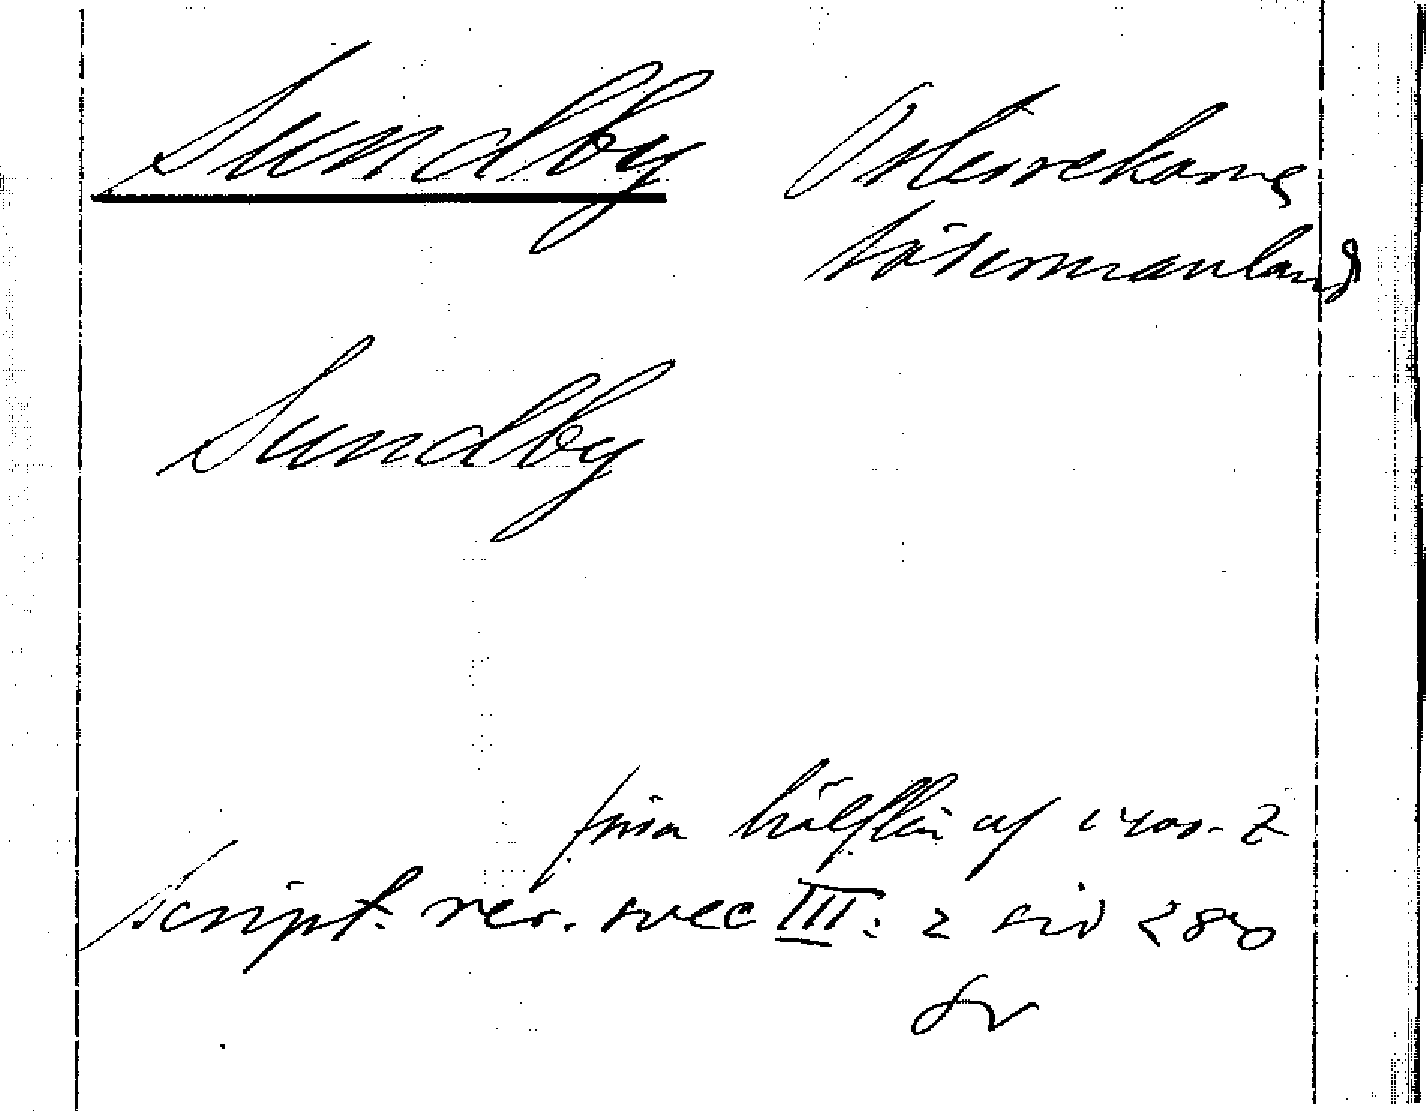 Sundby Österrekarne
Södermanland
Sundby
förra hälften af 1400-t
Script. rer. svec III: 2 sid 280